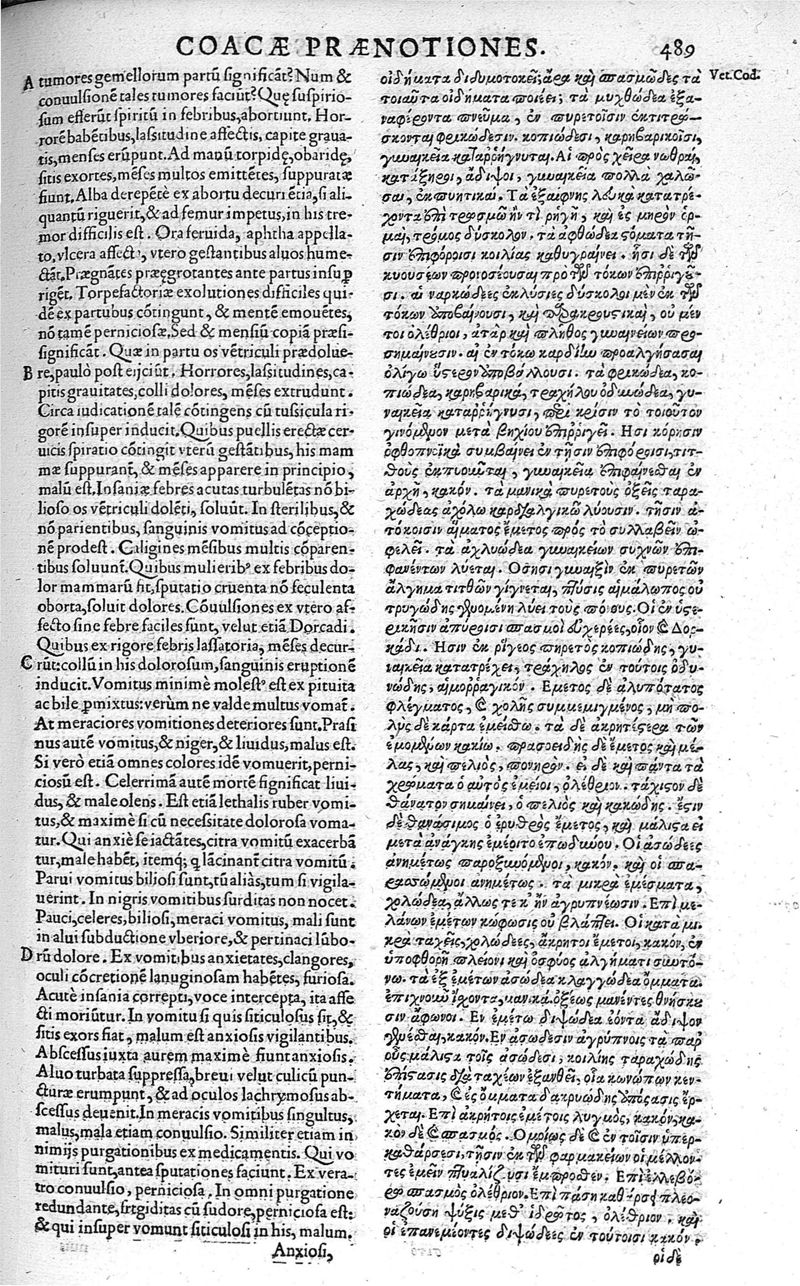 COACÆ PRÆNOTIONES.
489
A tumores gemellorum partũ significãt? Num &
conuulsionẽ tales tumores faciũt? Quę suspirio-
sum efferũt spiritũ in febribus, abortiunt. Hor-
rorẽ habẽtibus, lassitudine affectis, capite graua-
tis, menses erũpunt. Ad manũ torpidę, obaridę,
sitis exortes, mẽses multos emittẽtes, suppuratæ
fiunt. Alba derepẽtè ex abortu decurrẽtia, si ali-
quantũ riguerit, & ad femur impetus, in his tre-
mor difficilis est. Ora feruida, aphtha appella-
to, vlcera affect', vtero gestantibus aluos hume-
ctãt. Prægnãtes præęgrotantes ante partus insuꝑ
rigẽt. Torpefactoriæ exolutiones difficiles qui-
dẽ ex partubus cõtingunt, & mentẽ emouẽtes,
nõ tamẽ perniciosæ. Sed & mensiũ copiã præsi-
significãt. Quæ in partu os vẽtriculi prædolue-
B re, paulò pòst eijciũt. Horrores, lassitudines, ca-
pitis grauitates, colli dolores, mẽses extrudunt.
Circa iudicationẽ talẽ cõtingens cũ tussicula ri-
gorẽ insuper inducit. Quibus puellis erectæ cer-
uicis spiratio cõtingit vterũ gestãtibus, his mam
mæ suppurant, & mẽses apparere in principio,
malũ est. Insaniæ febres acutas turbulẽtas nõ bi-
lioso os vẽtriculi dolẽti, soluũt. In sterilibus, &
nõ parientibus, sanguinis vomitus ad cõceptio-
nẽ prodest. Caligines mẽsibus multis cõparen-
tibus soluunt. Quibus mulierib' ex febribus do-
lor mammarũ fit, sputatio cruenta nõ feculenta
oborta, soluit dolores. Cõuulsiones ex vtero af-
fecto sine febre faciles sunt, velut etiã Dorcadi.
Quibus ex rigore febris lassatoria, mẽses decur-
C rũt: collũ in his dolorosum, sanguinis eruptionẽ
inducit. Vomitus minimè molest' est ex pituita
ac bile ꝑmixtus: verùm ne valde multus vomat'.
At meraciores vomitiones deteriores sunt. Prasi
nus autẽ vomitus, & niger, & liuidus, malus est.
Si verò etiã omnes colores idẽ vomuerit, perni-
ciosũ est. Celerrimã autẽ mortẽ significat liui-
dus, & male olens. Est etiã lethalis ruber vomi-
tus, & maximè si cũ necessitate dolorosa voma-
tur. Qui anxiè se iactãtes, citra vomitũ exacerbã
tur, male habẽt, itemq; q̃ lãcinant citra vomitũ.
Parui vomitus biliosi sunt, tũ aliàs, tum si vigila-
uerint. In nigris vomitibus surditas non nocet.
Pauci, celeres, biliosi, meraci vomitus, mali sunt
in alui subductione vberiore, & pertinaci lũbo-
D rũ dolore. Ex vomitibus anxietates, clangores,
oculi cõcretionẽ lanuginosam habẽtes, furiosa.
Acutè insania correpti, voce intercepta, ita affe
cti moriũtur. In vomitu si quis siticulosus sit, &
sitis exors fiat, malum est anxiosis vigilantibus.
Abscessus iuxta aurem maximè fiunt anxiosis.
Aluo turbata suppressa, breui velut culicũ pun-
cturæ erumpunt, & ad oculos lachrymosus ab-
scessus deuenit. In meracis vomitibus singultus,
malus, mala etiam conuulsio. Similiter etiam in
nimijs purgationibus ex medicamentis. Qui vo
mituri sunt, antea sputationes faciunt. Ex vera-
tro conuulsio, perniciosa. In omni purgatione
redundante, frigiditas cũ sudore, perniciosa est:
& qui insuper vomunt siticulosi in his, malum.
Anxiosi,
Vet. Cod.
οἰδήματα διδυμοτοκεῖ; ἆρα καὶ σπασμώδες τὰ
τοιαῦτα οἰδήματα ποιέει; τὰ μυχθώδεα ἐξα-
ναφέροντα πνεῦμα, ἐν πυρετοῖσιν ἐκτιτρώ-
σκονται φρικώδεσιν. κοπιώδεσι, καρηβαρικοῖσι,
γυναικεῖα καταῤῥήγνυται. Αἱ πρὸς χεῖρα νωθραὶ,
κατάξηροι, ἄδιψοι, γυναικεῖα πολλὰ χαλῶ-
σαι, ἐκπυητικαί. Τὰ ἐξαίφνης λευκὰ κατατρέ-
χοντα ἐπὶ τρωσμῷ ἤν τι ῥιγῇ, καὶ ἐς μηρὸν ὁρ-
μαὶ, τρόμος δύσκολον. τὰ ἀφθώδεα στόματα τῇ-
σιν ἐπιφόροισι κοιλίας καθυγραίνει. ᾗσι δὲ τῶν
κυουσέων προνοσέουσαι πρὸ τῶν τόκων ἐπιῤῥιγέ-
σι. αἱ ναρκώδεες ἐκλύσιες δύσκολοι μὲν ἐκ τῶν
τόκων ἀποβαίνουσι, καὶ παρακρουστικαὶ, οὐ μέν-
τοι ὀλέθριοι, ἀτὰρ καὶ πλῆθος γυναικείων προ-
σημαίνουσιν. αἱ ἐν τόκῳ καρδίην προαλγήσασαι
ὀλίγῳ ὕστερον ἀποβάλλουσι. τὰ φρικώδεα, κο-
πιώδεα, καρηβαρικὰ, τραχήλου ὀδυνώδεα, γυ-
ναικεῖα καταῤῥήγνυσι, περὶ κρίσιν τὸ τοιοῦτον
γινόμενον μετὰ βηχίου ἐπιῤῥιγεῖ. Ησι κόρησιν
ὀρθοπνοϊκὰ συμβαίνει ἐν τῇσιν ἐπιφόροισι, τιτ-
θοὺς ἐκπυοῦνται, γυναικεῖα ἐπιφαίνεσθαι ἐν
ἀρχῇ, κακόν. τὰ μανικὰ πυρετοὺς ὀξεῖς ταρα-
χώδεας ἀχόλῳ καρδιαλγικῷ λύουσιν. τῇσιν ἀ-
τόκοισιν αἵματος ἔμετος πρὸς τὸ συλλαβεῖν ὠ-
φελεῖ. τὰ ἀχλυώδεα γυναικείων συχνῶν ἐπι-
φανέντων λύεται. Οσῃσι γυναιξὶν ἐκ πυρετῶν
ἄλγημα τιτθῶν γίγνεται, πτύσις αἱμάλωπος οὐ
τρυγώδης γενομένη λύει τοὺς πόνους. Οἱ ἐν ὑστε-
ρικῇσιν ἀπύροισι σπασμοὶ εὐχερέες, οἷον καὶ Δορ-
κάδι. Ησιν ἐκ ῥίγεος πυρετὸς κοπιώδης, γυ-
ναικεῖα κατατρέχει, τράχηλος ἐν τούτοις ὀδυ-
νώδης, αἱμοῤῥαγικόν. Εμετος δὲ ἀλυπότατος
φλέγματος, καὶ χολῆς συμμεμιγμένος, μὴ πο-
λὺς δὲ κάρτα ἐμείσθω. τὰ δὲ ἀκρητέστερα τῶν
ἐμουμένων κακίω. πρασοειδὴς δὲ ἔμετος καὶ μέ-
λας, καὶ πελιὸς, πονηρόν. εἰ δὲ καὶ πάντα τὰ
χρώματα ὁ αὐτὸς ἐμέοι, ὀλέθριον. τάχιστον δὲ
θάνατον σημαίνει, ὁ πελιὸς καὶ κακώδης. ἔστιν
δὲ θανάσιμος ὁ ἐρυθρὸς ἔμετος, καὶ μάλιστα εἰ
μετὰ ἀνάγκης ἐμέοιτο ἐπωδύνου. Οἱ ἀσώδεες
ἀνημέτως παροξυνόμενοι, κακόν. καὶ οἱ σπα-
ρασσόμενοι ἀνημέτως. τὰ μικρὰ ἐμέσματα,
χολώδεα, ἄλλως τε κ' ἢν ἀγρυπνέωσιν. Επὶ με-
λάνων ἐμέτων κώφωσις οὐ βλάπτει. Οἱ κατὰ μι-
κρὰ ταχεῖς, χολώδεες, ἄκρητοι ἔμετοι, κακὸν, ἐν
ὑποφθορῇ πλείονι καὶ ὀσφύος ἀλγήματι συντό-
νῳ. τὰ ἐξ ἐμέτων ἀσώδεα κλαγγώδεα ὄμματα
ἐπίχνουν ἴσχοντα, μανικά. ὀξέως μανέντες θνήσκου-
σιν ἄφωνοι. Εν ἐμέτῳ διψώδεα ἐόντα ἄδιψον
γενέσθαι, κακόν. Εν ἀσώδεσιν ἀγρύπνοις τὰ παρ'
οὖς μάλιστα τοῖς ἀσώδεσι, κοιλίης ταραχώδης
ἐπίστασις διὰ ταχέων ἐξανθεῖ, οἷα κωνώπων κεν-
τήματα, καὶ ἐς ὄμματα δακρυώδης ἀπόστασις ἔρ-
χεται. Επὶ ἀκρήτοις ἐμέτοις λυγμὸς, κακὸν, κα-
κὸν δὲ καὶ σπασμός. Ομοίως δὲ καὶ ἐν τοῖσιν ὑπερ-
καθάρσεσι, τῇσιν ἐκ τῶν φαρμακείων οἱ μέλλον-
τες ἐμεῖν πτυαλίζουσι ἔμπροσθεν. Επὶ ἐλλεβό-
ρῳ σπασμὸς ὀλέθριον. Επὶ πάσῃ καθάρσει πλεο-
ναζούσῃ ψύξις μεθ' ἱδρῶτος, ὀλέθριον. καὶ
οἱ ἐπανεμέοντες διψώδεες ἐν τούτοισι κακόν.
οἱ δὲ